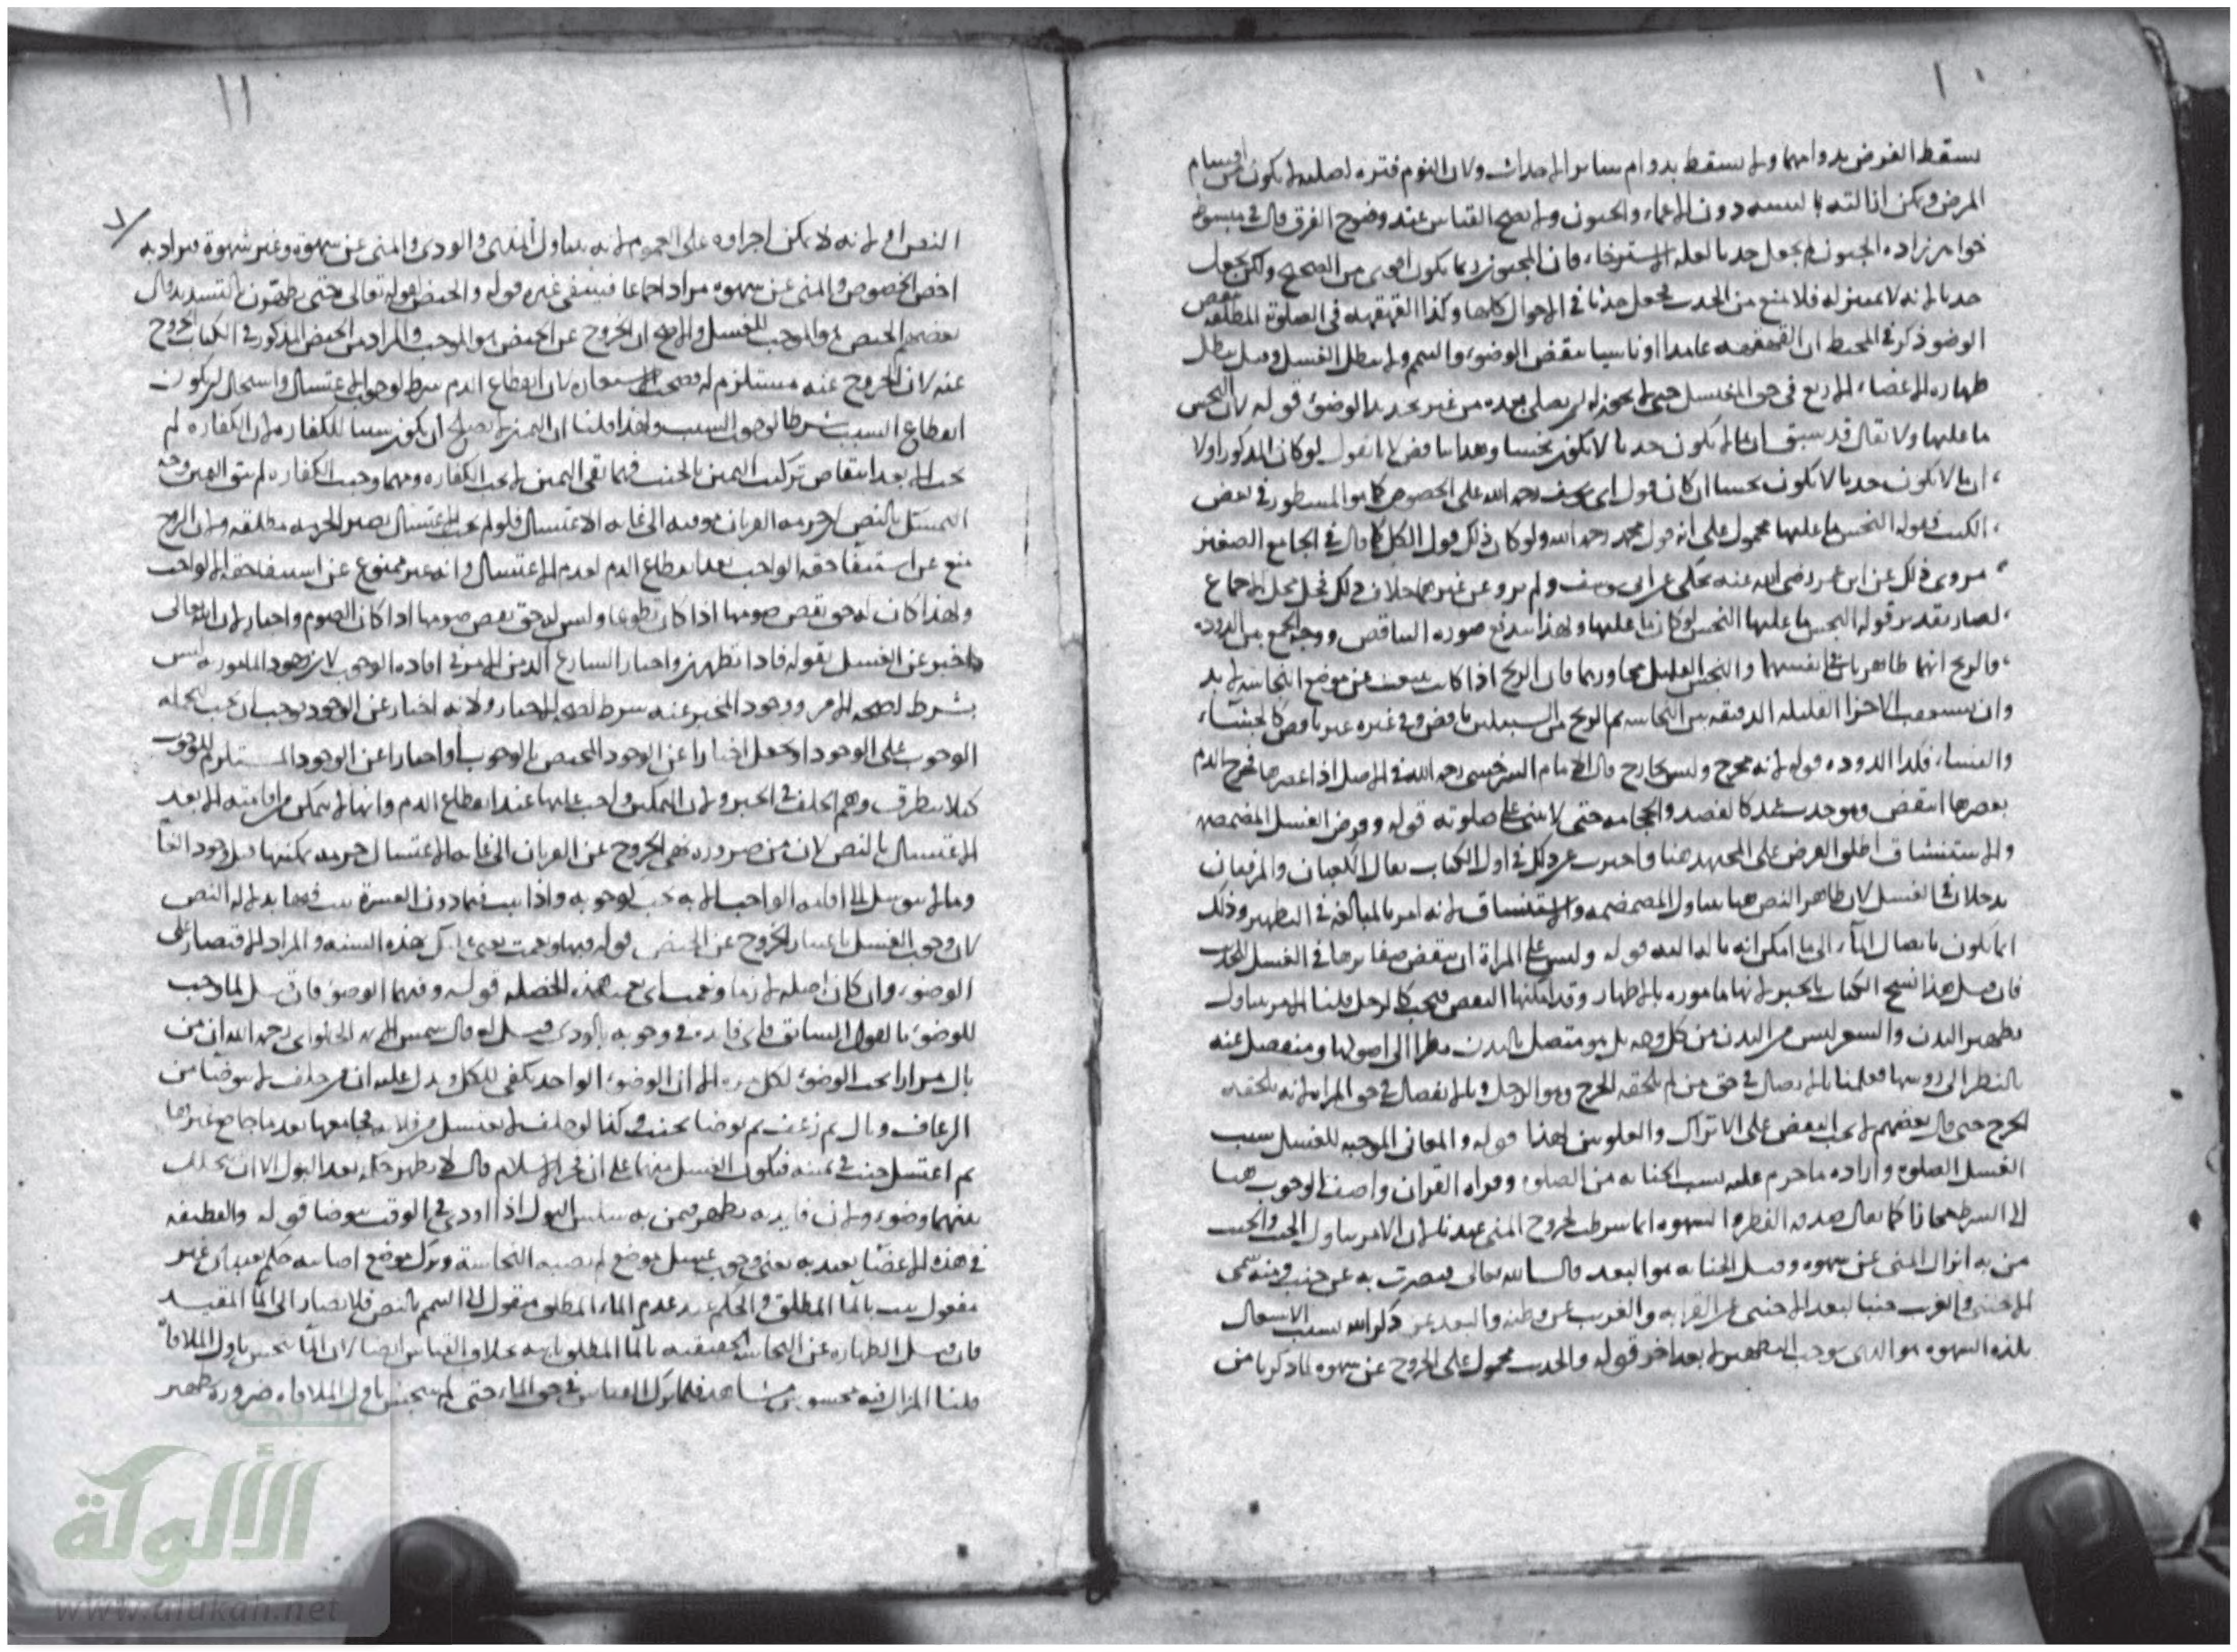 ١٠
يسقط الفرض بدوامهما ولا يسقط بدوام سائر الاحداث ولان النوم فترة اصلية لا يكون من اقسام
المرض ويمكن ازالته بالتنبيه دون الاغماء والجنون ولا يصح القياس عند وضوح الفرق قال في مبسوط
خواهر زاده الجنون لم يجعل حدثا لعلة الاسترخاء فان المجنون ربما يكون اقوى من الصحيح ولكن يجعل
حدثا لانه لا تمييز له فلا يمنع من الحدث فجعل حدثا في الاحوال كلها وكذا القهقهة في الصلوة المطلقة تنقض
الوضوء ذكر في المحيط ان القهقهة عامدا او ناسيا ينقض الوضوء والتيمم ولا يبطل الغسل وقيل يبطل
طهارة الاعضاء الاربع في حق المغتسل حتى لا يجوز له ان يصلي بعده من غير تجديد الوضوء قوله لان النجس
ما عليها ولا يقال قد سبق ان ما لا يكون حدثا لا يكون نجسا وهذا يناقض لانا نقول لو كان المذكور اولا
ان ما لا يكون حدثا لا يكون نجسا ان كان قول ابي يوسف رحمه الله على الخصوص كما هو المسطور في بعض
الكتب فقوله النجس ما عليها محمول على انه قول محمد رحمه الله ولو كان ذلك قول الكل كما قال في الجامع الصغير
مروي ذلك عن ابن عمر رضي الله عنه يحكى عن ابي يوسف ولم يرو عن غيرهما خلاف ذلك فحل محل الاجماع
لصار تقدير قوله النجس ما عليها النجس لو كان ما عليها ولهذا يندفع صورة التناقض ووجه الجمع بين الدودة
والريح انهما طاهرتان في انفسهما والنجس القليل مجاورهما فان الريح اذا كانت تنبعث عن موضع النجاسة لا بد
وان يستصحب الاجزاء القليلة الدقيقة من النجاسة ثم الريح من السبيلين ناقض وفي غيره غير ناقض كالجشاء
والفساء فكذا الدودة قوله لانه مخرج وليس بخارج قال الامام السرخسي رحمه الله في الاصل اذا عصرها فخرج الدم
بعصرها انتقض وهو حدث عمد كالفصد والحجامة حتى لا يبني على صلوته قوله وفرض الغسل المضمضة
والاستنشاق اطلق الفرض على المجتهد هنا واحترز عن ذلك في اول الكتاب فقال الكعبان والمرفقان
يدخلان في الغسل لان ظاهر النص هنا يتناول المضمضة والاستنشاق لانه امر بالمبالغة في التطهير وذلك
انما يكون بايصال الماء الى ما امكن قوله وليس على المراة ان ينقض ضفائرها في الغسل
فان قيل هذا نسخ الكتاب بالخبر لانها مامورة بالاطهار وقد امكنها النقض فيجب كالرجل قلنا الامر يتناول
تطهير البدن والشعر ليس من البدن من كل وجه بل هو متصل بالبدن نظرا الى اصولها ومنفصل عنه
بالنظر الى رؤسها فعملنا بالاتصال في حق من لم يلحقه الحرج وهو الرجل وبالانفصال في حق المراة لانه يلحقه
الحرج حتى قال بعضهم يجب النقض على الاتراك والعلويين لهذا قوله والمعاني الموجبة للغسل سبب
الغسل الصلوة وارادة ما حرم عليه بسبب الجنابة من الصلوة وقراة القران واضيف الوجوب هنا
الى الشرط مجازا كما يقال صدقة الفطر والشهوة انما شرطت لخروج المني عندنا لان الامر يتناول الجنب والجنب
من به انزال المني عن شهوة وقيل الجنابة هو البعد قال الله تعالى فبصرت به عن جنب ومنه سمي
الاجنبي والغريب جنبا لبعد الاجنبي عن القرابة والغريب عن وطنه والبعد عن ذكر الله بسبب الاشتغال
بلذة الشهوة هو الذي يوجب التطهير لا بعد اخر قوله والحديث محمول على الخروج عن شهوة لما ذكرنا من
١١
النص او لانه لا يمكن اجراؤه على العموم لانه يتناول المذي والودي والمني عن شهوة وغير شهوة فيراد به
اخص الخصوص والمني عن شهوة مراد اجماعا فينتفي غيره قوله والحيض لقوله تعالى حتى يطهرن بالتشديد قال
بعضهم الحيض هو الموجب للغسل والاصح ان الخروج عن الحيض هو الموجب والمراد من الحيض المذكور في الكتاب الخروج
عنه لان الخروج عنه مستلزم له فصحت الاستعارة لان انقطاع الدم شرط لوجوب الاغتسال واستحال ان يكون
انقطاع السبب شرطا لوجوب المسبب ولهذا قلنا ان اليمين لا يصلح ان يكون سببا للكفارة لان الكفارة لم
تجب الا بعد انتقاض تركيب اليمين بالحنث فمهما بقي اليمين لا يجب الكفارة ومهما وجبت الكفارة لم يبق اليمين وجه
التمسك بالنص ان حرمة القربان موقتة الى غاية الاغتسال فلو لم يجب الاغتسال يصير الحرمة مطلقة ولان الزوج
منع عن استيفاء حقه الواجب بعد انقطاع الدم لعدم الاغتسال وانه غير ممنوع عن استيفاء حقه الواجب
ولهذا كان له حق نقض صومها اذا كان تطوعا وليس له حق نقض صومها اذا كان الصوم واجبا لان الله تعالى
اخبر عن الغسل بقوله فاذا تطهرن واخبار الشارع اكد من الامر في افادة الوجوب لان وجود المامور به ليس
بشرط لصحة الامر ووجود المخبر عنه شرط لصحة الاخبار ولانه اخبار عن الوجود يوجب ان يجب تحمله
الوجوب على الوجود او يجعل اخبارا عن الوجود المختص بالوجوب او اخبارا عن الوجود المستلزم للوجوب
كيلا يتطرق وهم الخلف في الخبر ولان التمكين واجب عليها عند انقطاع الدم وانها لا يتمكن من اقامته الا بعد
الاغتسال بالنص لان من ضرورة نهي الزوج عن القربان الى غاية الاغتسال حرمة تمكينها قبل وجود الغاية
وما لا يتوسل الى اقامة الواجب الا به يجب كوجوبه واذا ثبت فيما دون العشرة ثبت فيها بدلالة النص
لان وجوب الغسل باعتبار الخروج عن الحيض قوله فبها ونعمت يعني عليك بهذه السنة والمراد الاقتصار على
الوضوء وان كان اصله لازما ونعمت اي نعمت هذه الخصلة قوله وفيهما الوضوء فان قيل لما وجب
للوضوء بالبول السابق فاي فائدة في وجوبه بالودي قيل له قال شمس الائمة الحلواني رحمه الله ان من
بال مرارا يجب الوضوء لكل مرة الا ان الوضوء الواحد يكفي للكل ويدل عليه ان من حلف لا يتوضا من
الرعاف وبال ثم رعف ثم توضا يحنث وكذا لو حلف لا يغتسل من فلانة فجامعها بعد ما جامع غيرها
ثم اغتسل حنث في يمينه فيكون الغسل منهما على ان فخر الاسلام قال لا يظهر حكمه بعد البول الا ان يتخلل
بينهما وضوء ولان فائدته تظهر فيمن به سلس البول اذا اودى في الوقت يتوضا قوله والوظيفة
في هذه الاعضاء تعبدية يعني وجوب غسل موضع لم يصبه النجاسة وترك موضع اصابته حكم تعبدي غير
معقول ثبت بالماء المطلق والحكم عند عدم الماء المطلق منقول الى التيمم بالنص فلا يصار الى الماء المقيد
فان قيل الطهارة عن النجاسة الحقيقية بالماء المطلق ثابت بخلاف القياس ايضا لان الماء تنجس باول الملاقاة
قلنا المزال فيه محسوس مشاهد فلما ترك القياس في حق الماء حتى لم يتنجس باول الملاقاة ضرورة تطهير
شبكة
الألوكة
www.alukah.net